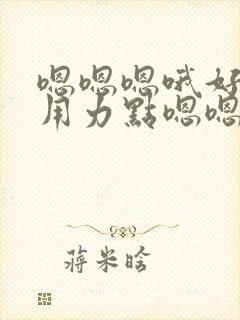 嗯嗯嗯哦好
用力點嗯嗯
蔣米晗